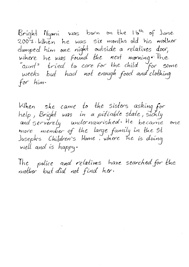 Bright Nyoni was born on the 16th of June
2007. When he was six months old his mother
dumped him one night outside a relatives door,
where he was found the next morning. The
"aunt" tried to care for the child for some
weeks but had not enough food and clothing
for him.
When she came to the sisters asking for
help, Bright was in a pitiable state, sickly
and serverely undernourished. He became one
more member of the large family in the St
Josephs Children's Home, where he is doing
well and is happy.
The police and relatives have searched for the
mother but did not find her.